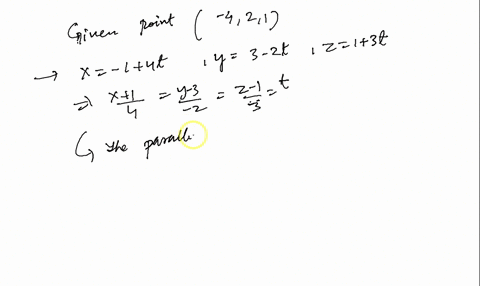 Given point (-4, 2, 1)
→ x = -1+4t , y = 3-2t , z = 1+3t
⇒ x+1/4 = y-3/-2 = z-1/3 = t
↳ the parall